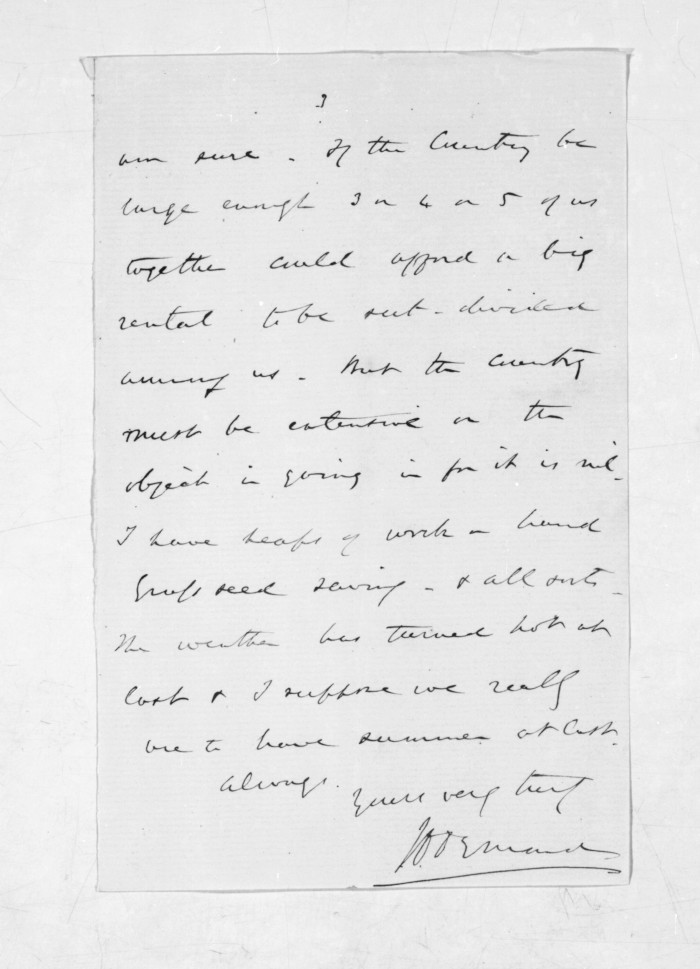 3
am sure - If the Country be
large enough 3 or 4 or 5 of us
together could afford a big
rental to be sub-divided
among us - But the Country
must be extensive or the
object in going in for it is nil -
I have heaps of work on hand
Grass seed saving - & all sorts -
The weather has turned hot at
last & I suppose we really
are to have summer at last.
always.
Yours very truly